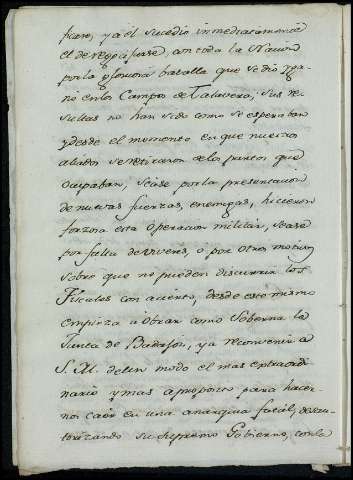 ficare, y a él sucedio inmediatamente
el de regocijarse, con toda la Nacion
por la gloriosa batalla que se dio y ga-
nó en los Campos de Talavera; sus re-
sultas no han sido como se esperaban
y desde el momento en que nuestros
aliados se retiraron de los puntos que
ocupaban, sease por la presentacion
de nuevas fuerzas, enemigas, hicieron
forzosa esta operacion militar, sease
por falta de viveres, o por otros motivos
sobre que no pueden discurrir los
Fiscales con acierto, desde ese mismo
empieza a obrar como Soberna la
Junta de Badajoz, ya reconvenir a
S. M. de un modo el mas extraordi-
nario y mas aproposito para hacer-
nos caer en una anarquia fatal, desau-
torizando su Supremo Gobierno, con la